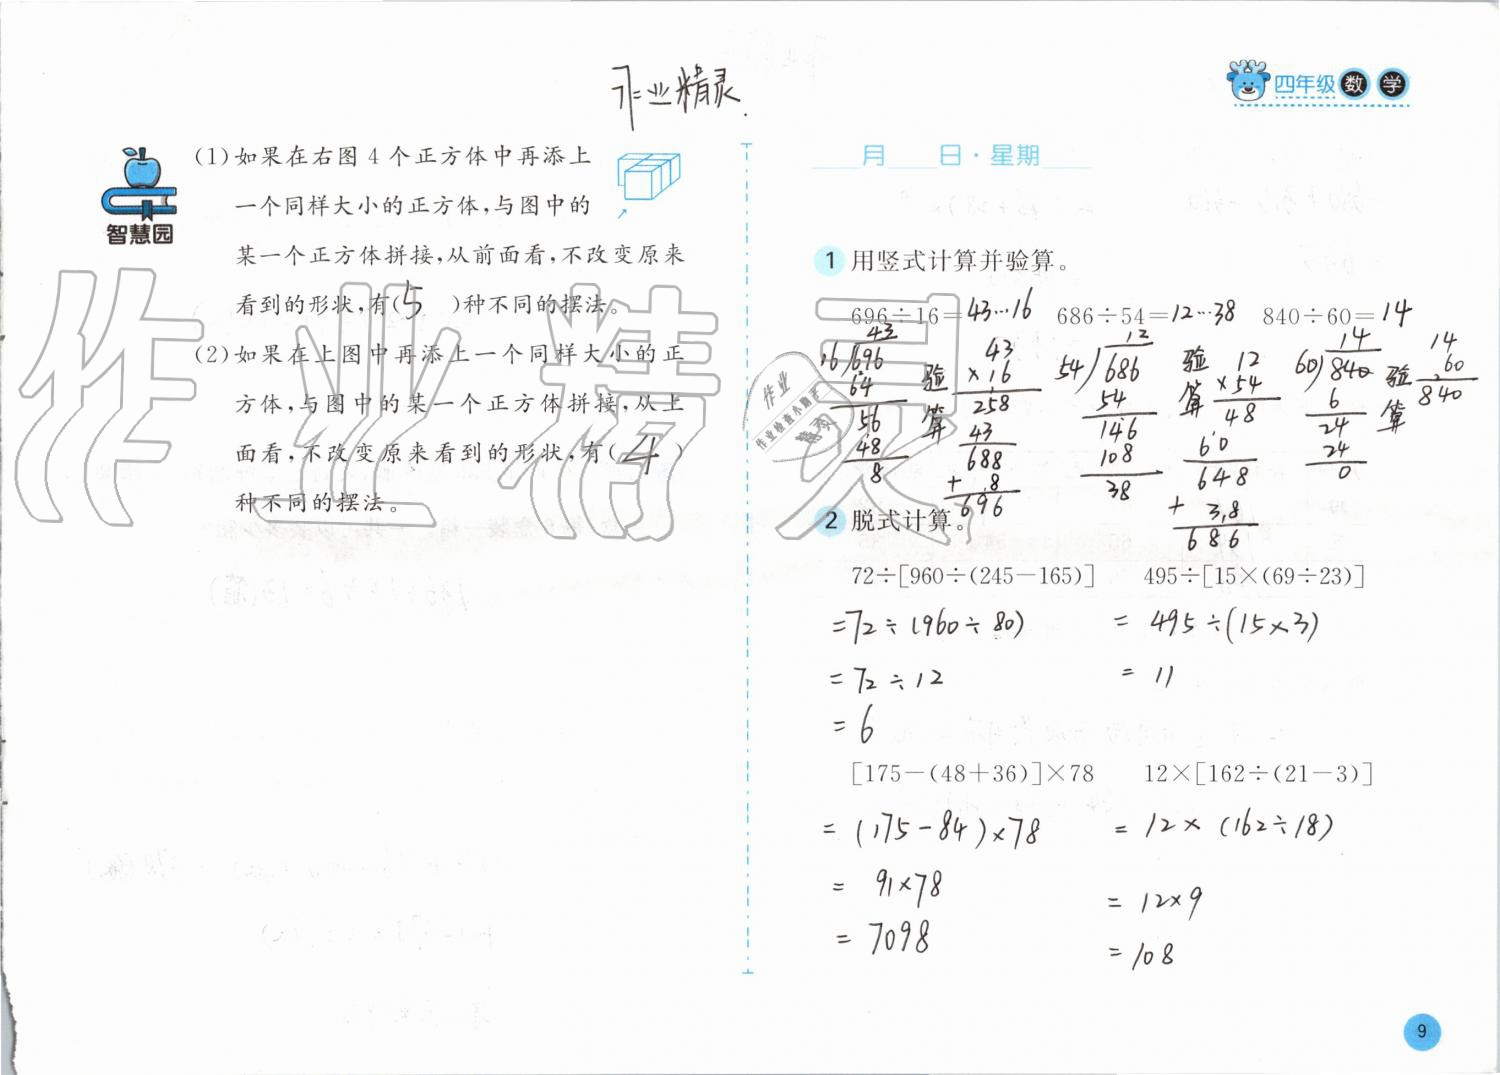 作业精灵
四年级 数学
智慧园
(1)如果在右图4个正方体中再添上
一个同样大小的正方体,与图中的
某一个正方体拼接,从前面看,不改变原来
看到的形状,有(5)种不同的摆法。
(2)如果在上图中再添上一个同样大小的正
方体,与图中的某一个正方体拼接,从上
面看,不改变原来看到的形状,有(4)
种不同的摆法。
作业精灵
月 日·星期
1 用竖式计算并验算。
696÷16=43…16 686÷54=12…38 840÷60=14
43
16 696
64
56
48
8
验算
43
×16
258
43
688
+ 8
696
12
54 686
54
146
108
38
验算
12
×54
48
60
648
+ 38
686
14
60 840
6
24
24
0
验算
14
60
840
2 脱式计算。
72÷[960÷(245-165)] 495÷[15×(69÷23)]
=72÷(960÷80) =495÷(15×3)
=72÷12 =11
=6
[175-(48+36)]×78 12×[162÷(21-3)]
=(175-84)×78 =12×(162÷18)
=91×78 =12×9
=7098 =108
9